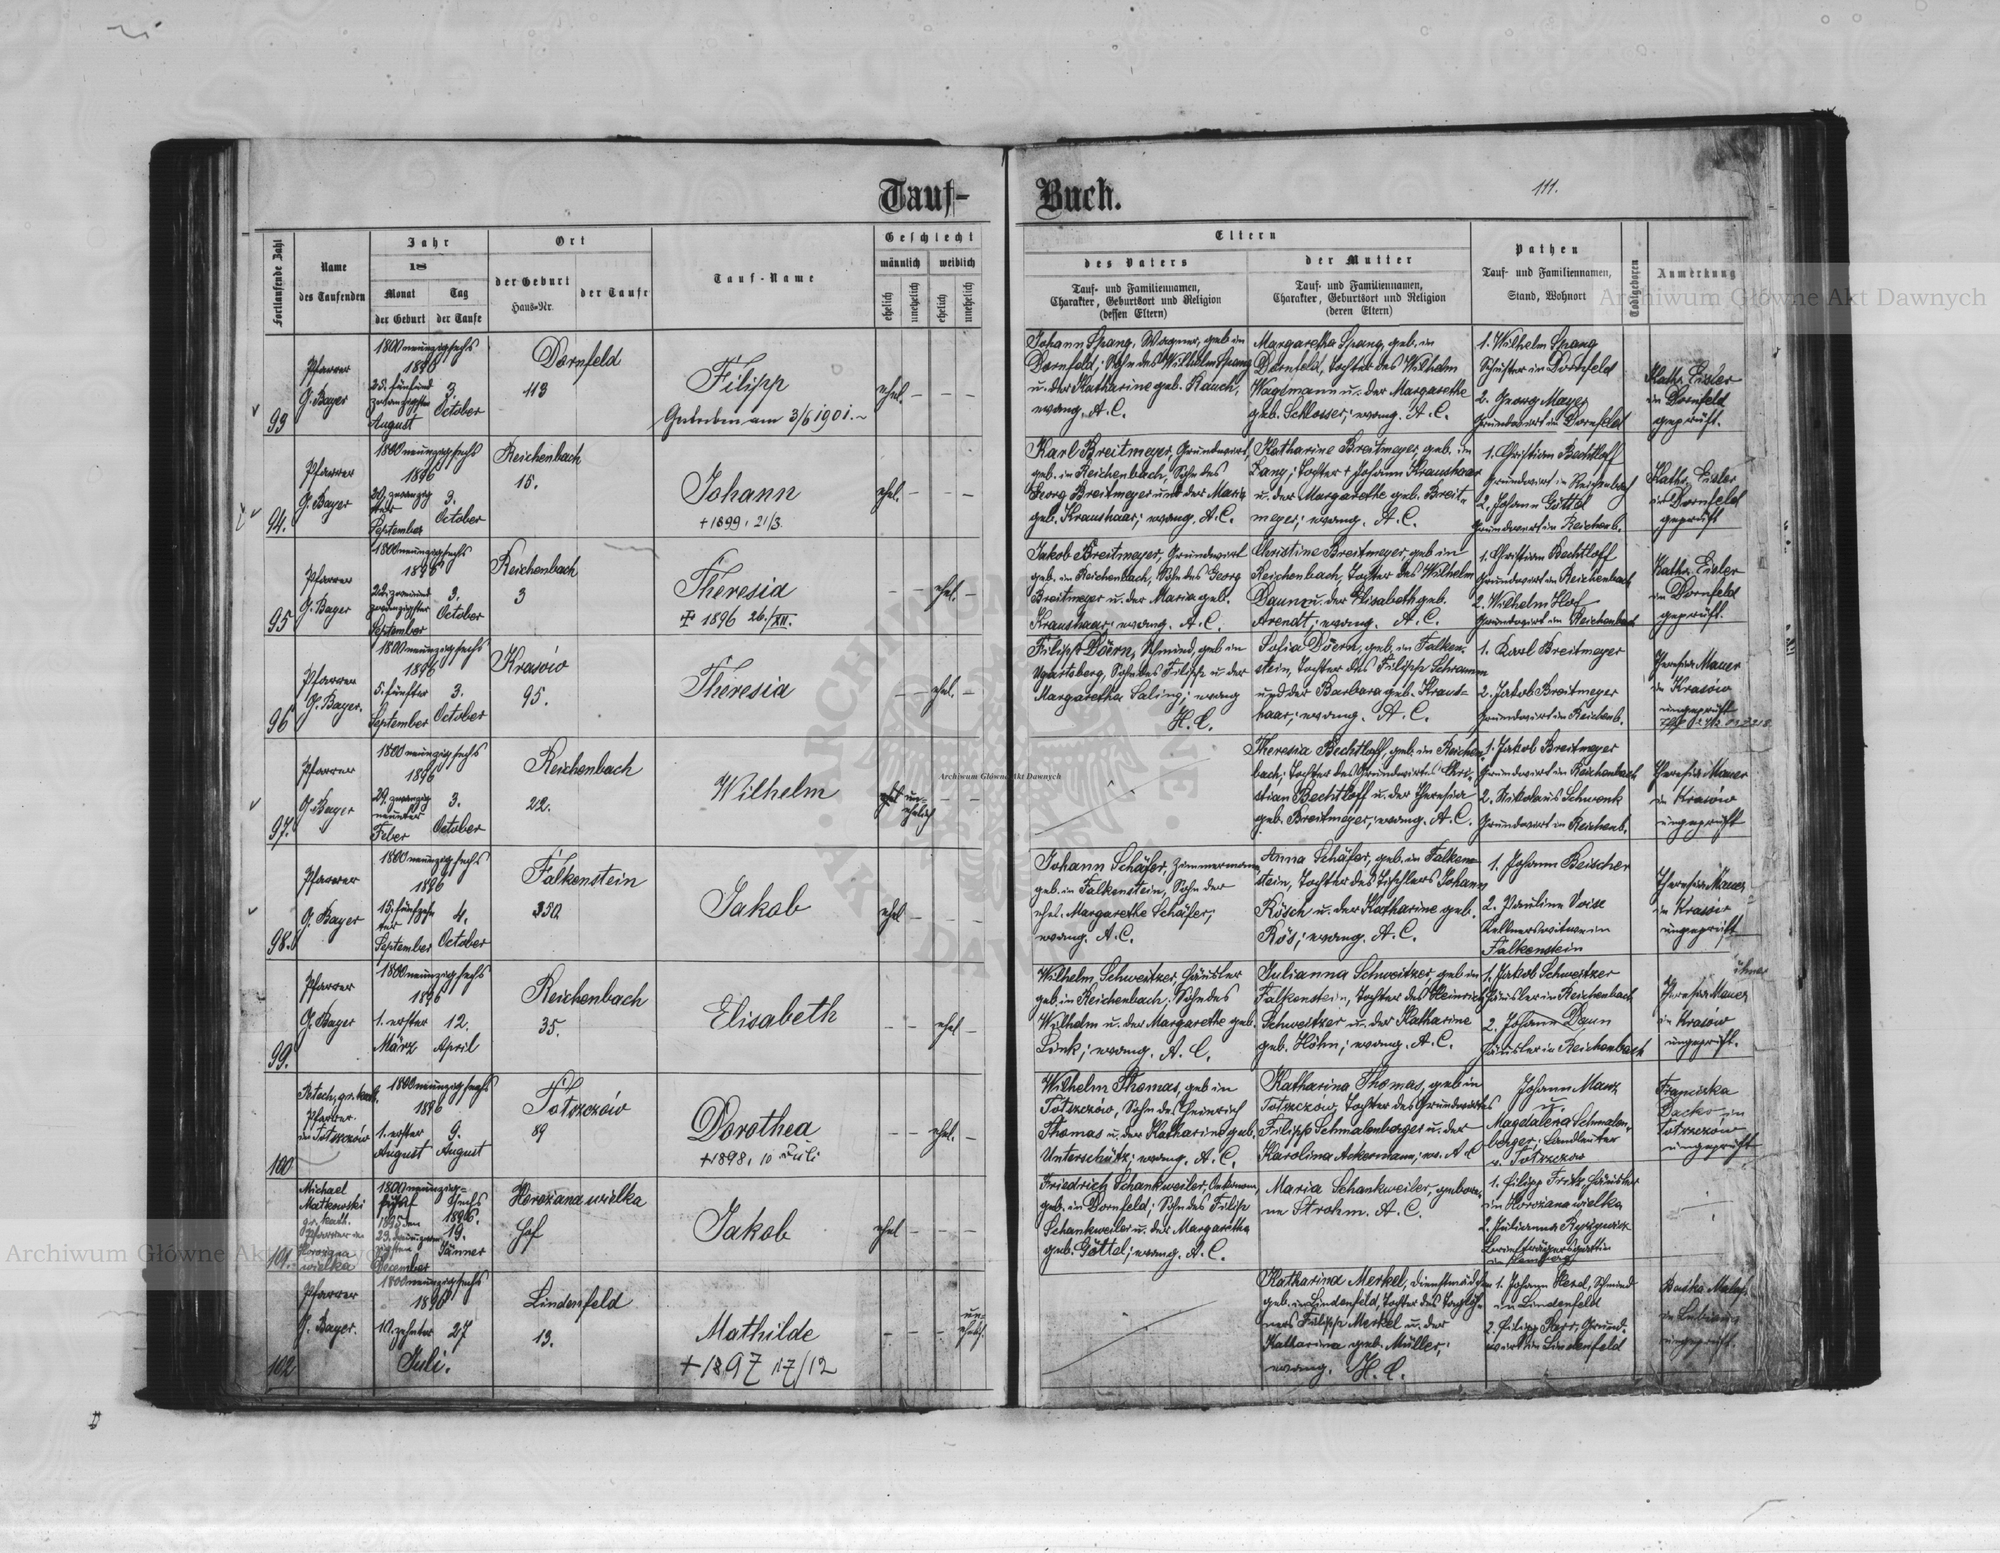 Tauf-
Buch.
111.
Fortlaufende Zahl
Name
des Taufenden
Jahr
18
Monat
der Geburt
Tag
der Taufe
Ort
der Geburt
Haus-Nr.
der Taufe
Tauf-Name
Geschlecht
männlich
weiblich
ehelich
unehelich
ehelich
unehelich
Eltern
des Vaters
Tauf- und Familiennamen,
Charakter, Geburtsort und Religion
(dessen Eltern)
der Mutter
Tauf- und Familiennamen,
Charakter, Geburtsort und Religion
(deren Eltern)
Pathen
Tauf- und Familiennamen,
Stand, Wohnort
Todtgeboren
Anmerkung
93
Pfarrer
G. Bayer
1800 neunzigsechs
1896
25. fünfund
zwanzigster
August
3.
October
Dornfeld
113
Filipp
am 3/6 1901.
ehel.
Johann Spang, Wagner, geb. in
Dornfeld; Sohn des Wilhelm Spang
u. der Katharine geb. Rauch;
evang. A. C.
Margaretha Spang, geb. in
Dornfeld, Tochter des Wilhelm
Wagemann u. der Margarethe
geb. Schlosser; evang. A. C.
1. Wilhelm Spang
Schuster in Dornfeld
2. Georg Mayer
Grundwirt in Dornfeld
Kath. Eisler
in Dornfeld
geprüft.
94.
Pfarrer
G. Bayer
1800 neunzigsechs
1896
September
3.
October
Reichenbach
15.
Johann
+ 1899, 21/3.
ehel.
Karl Breitmeyer, Grundwirt,
geb. in Reichenbach, Sohn des
Georg Breitmeyer und der Maria
geb. Kraushaar; evang. A. C.
Katharine Breitmeyer, geb. in
Tochter + Johann Kraushaar
u. der Margarethe geb. Breit-
meyer; evang. A. C.
1. Christian Bechtloff
Grundwirt in Reichenbach
2. Johann Göttel
Grundwirt in Reichenb.
Kath. Eisler
in Dornfeld
geprüft
95
Pfarrer
G. Bayer
1800 neunzigsechs
1896
22. zweiund
zwanzigster
September
3.
October
Reichenbach
3
Theresia
+ 1896 26./XII.
ehel.
Jakob Breitmeyer, Grundwirt
geb. in Reichenbach, Sohn des Georg
Breitmeyer u. der Maria geb.
Kraushaar; evang. A. C.
Christine Breitmeyer, geb. in
Reichenbach, Tochter des Wilhelm
Daum u. der Elisabeth geb.
Arendt; evang. A. C.
1. Christian Bechtloff
Grundwirt in Reichenbach
2. Wilhelm Hof
Grundwirt in Reichenbach
Kath. Eisler
in Dornfeld
geprüft.
96
Pfarrer
G. Bayer.
1800 neunzigsechs
1896
5. fünfter
September
3.
October
Krasów
95.
Theresia
ehel.
Filipp Döern, Schmied, geb. in
Sohn des Filipp u. der
Margaretha Saling; evang.
H. C.
Sofia Döern, geb. in Falken-
stein, Tochter des Filipp Schramm
und der Barbara geb. Kraus-
haar; evang. A. C.
1. Karl Breitmeyer
2. Jakob Breitmeyer
Grundwirt in Reichenb.
Theresia Mauer
in Krasów
ungeprüft
97.
Pfarrer
G. Bayer
1800 neunzigsechs
1896
29. zwanzig
neunter
Feber
3.
October
Reichenbach
22.
Wilhelm
un-
ehelich
Theresia Bechtloff, geb. in Reichen-
bach; Tochter des Grundwirtes Chri-
stian Bechtloff u. der Theresia
geb. Breitmeyer; evang. A. C.
1. Jakob Breitmeyer
Grundwirt in Reichenbach
2. Nikolaus Schwenk
Grundwirt in Reichenb.
Theresia Mauer
in Krasów
ungeprüft
98.
Pfarrer
G. Bayer
1800 neunzigsechs
1896
15. fünfzehn
ter
September
4.
October
Falkenstein
350.
Jakob
ehel
Johann Schäfer, Zimmermann,
geb. in Falkenstein, Sohn der
ehel. Margarethe Schäfer;
evang. A. C.
Anna Schäfer, geb. in Falken-
stein, Tochter des Tischlers Johann
Rösch u. der Katharine geb.
Rös; evang. A. C.
1. Johann Beischer
2. Pauline
Kellnerswitwe in
Falkenstein
Theresia Mauer
in Krasów
ungeprüft
99.
Pfarrer
G. Bayer
1800 neunzigsechs
1896
1. erster
März
12.
April
Reichenbach
35.
Elisabeth
ehel
Wilhelm Schweitzer, Häusler
geb. in Reichenbach; Sohn des
Wilhelm u. der Margarethe geb.
Link; evang. A. C.
Julianna Schweitzer, geb. in
Falkenstein, Tochter des Heinrich
Schweitzer u. der Katharine
geb. Höhn; evang. A. C.
1. Jakob Schweitzer
Häusler in Reichenbach
2. Johann Daum
Häusler in Reichenbach
Theresia Mauer
in Krasów
ungeprüft.
100
gr. kath.
Pfarrer
in Totszczów
1800 neunzigsechs
1896
1. erster
August
9.
August
Totszczów
89
Dorothea
+ 1898, 10 Juli
ehel.
Wilhelm Thomas, geb. in
Totszczów, Sohn des Heinrich
Thomas u. der Katharine geb.
Unterschütz; evang. A. C.
Katharina Thomas, geb. in
Totszczów, Tochter des Grundwirtes
Filipp Schmalenberger u. der
Karolina Ackermann; ev. A. C
Johann Manz
u.
Magdalena Schmalen-
berger; Landleute
v. Totszczow
Franciska
Dacko in
Totszczow
ungeprüft
101.
Michael
Matkowski
gr. kath.
Pfarrer in
Horożana
wielka
1800 neunzig-
1895 den
December
sechs
1896.
19.
Jänner
Horożana wielka
Hof
Jakob
ehel
Friedrich Schankweiler, Oekonom,
geb. in Dornfeld; Sohn des Filipp
Schankweiler u. der Margaretha
geb. Göttel; evang. A. C.
Maria Schankweiler, gebore-
ne Strohm. A. C.
1. Filipp Fritz, Häusler
in Horożana wielka
2. Julianna
Briefträgersgattin
102
Pfarrer
G. Bayer.
1800 neunzigsechs
1896
10. zehnter
27
Juli.
Lindenfeld
13.
Mathilde
+ 1897 17/12
un-
ehel.
Katharina Merkel, Dienstmädchen
geb. in Lindenfeld, Tochter des Taglöh-
ners Filipp Merkel u. der
Katharina geb. Müller;
evang. H. C.
1. Johann Hexel, Schmied
in Lindenfeld
2. Filipp Kerr, Grund-
wirt in Lindenfeld
ungeprüft.
Archiwum Główne Akt Dawnych
Archiwum Główne Akt Dawnych
Archiwum Główne Akt